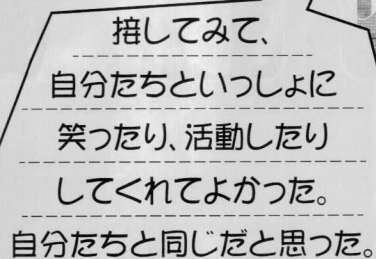 接してみて、
自分たちといっしょに
笑ったり、活動したり
してくれてよかった。
自分たちと同じだと思った。